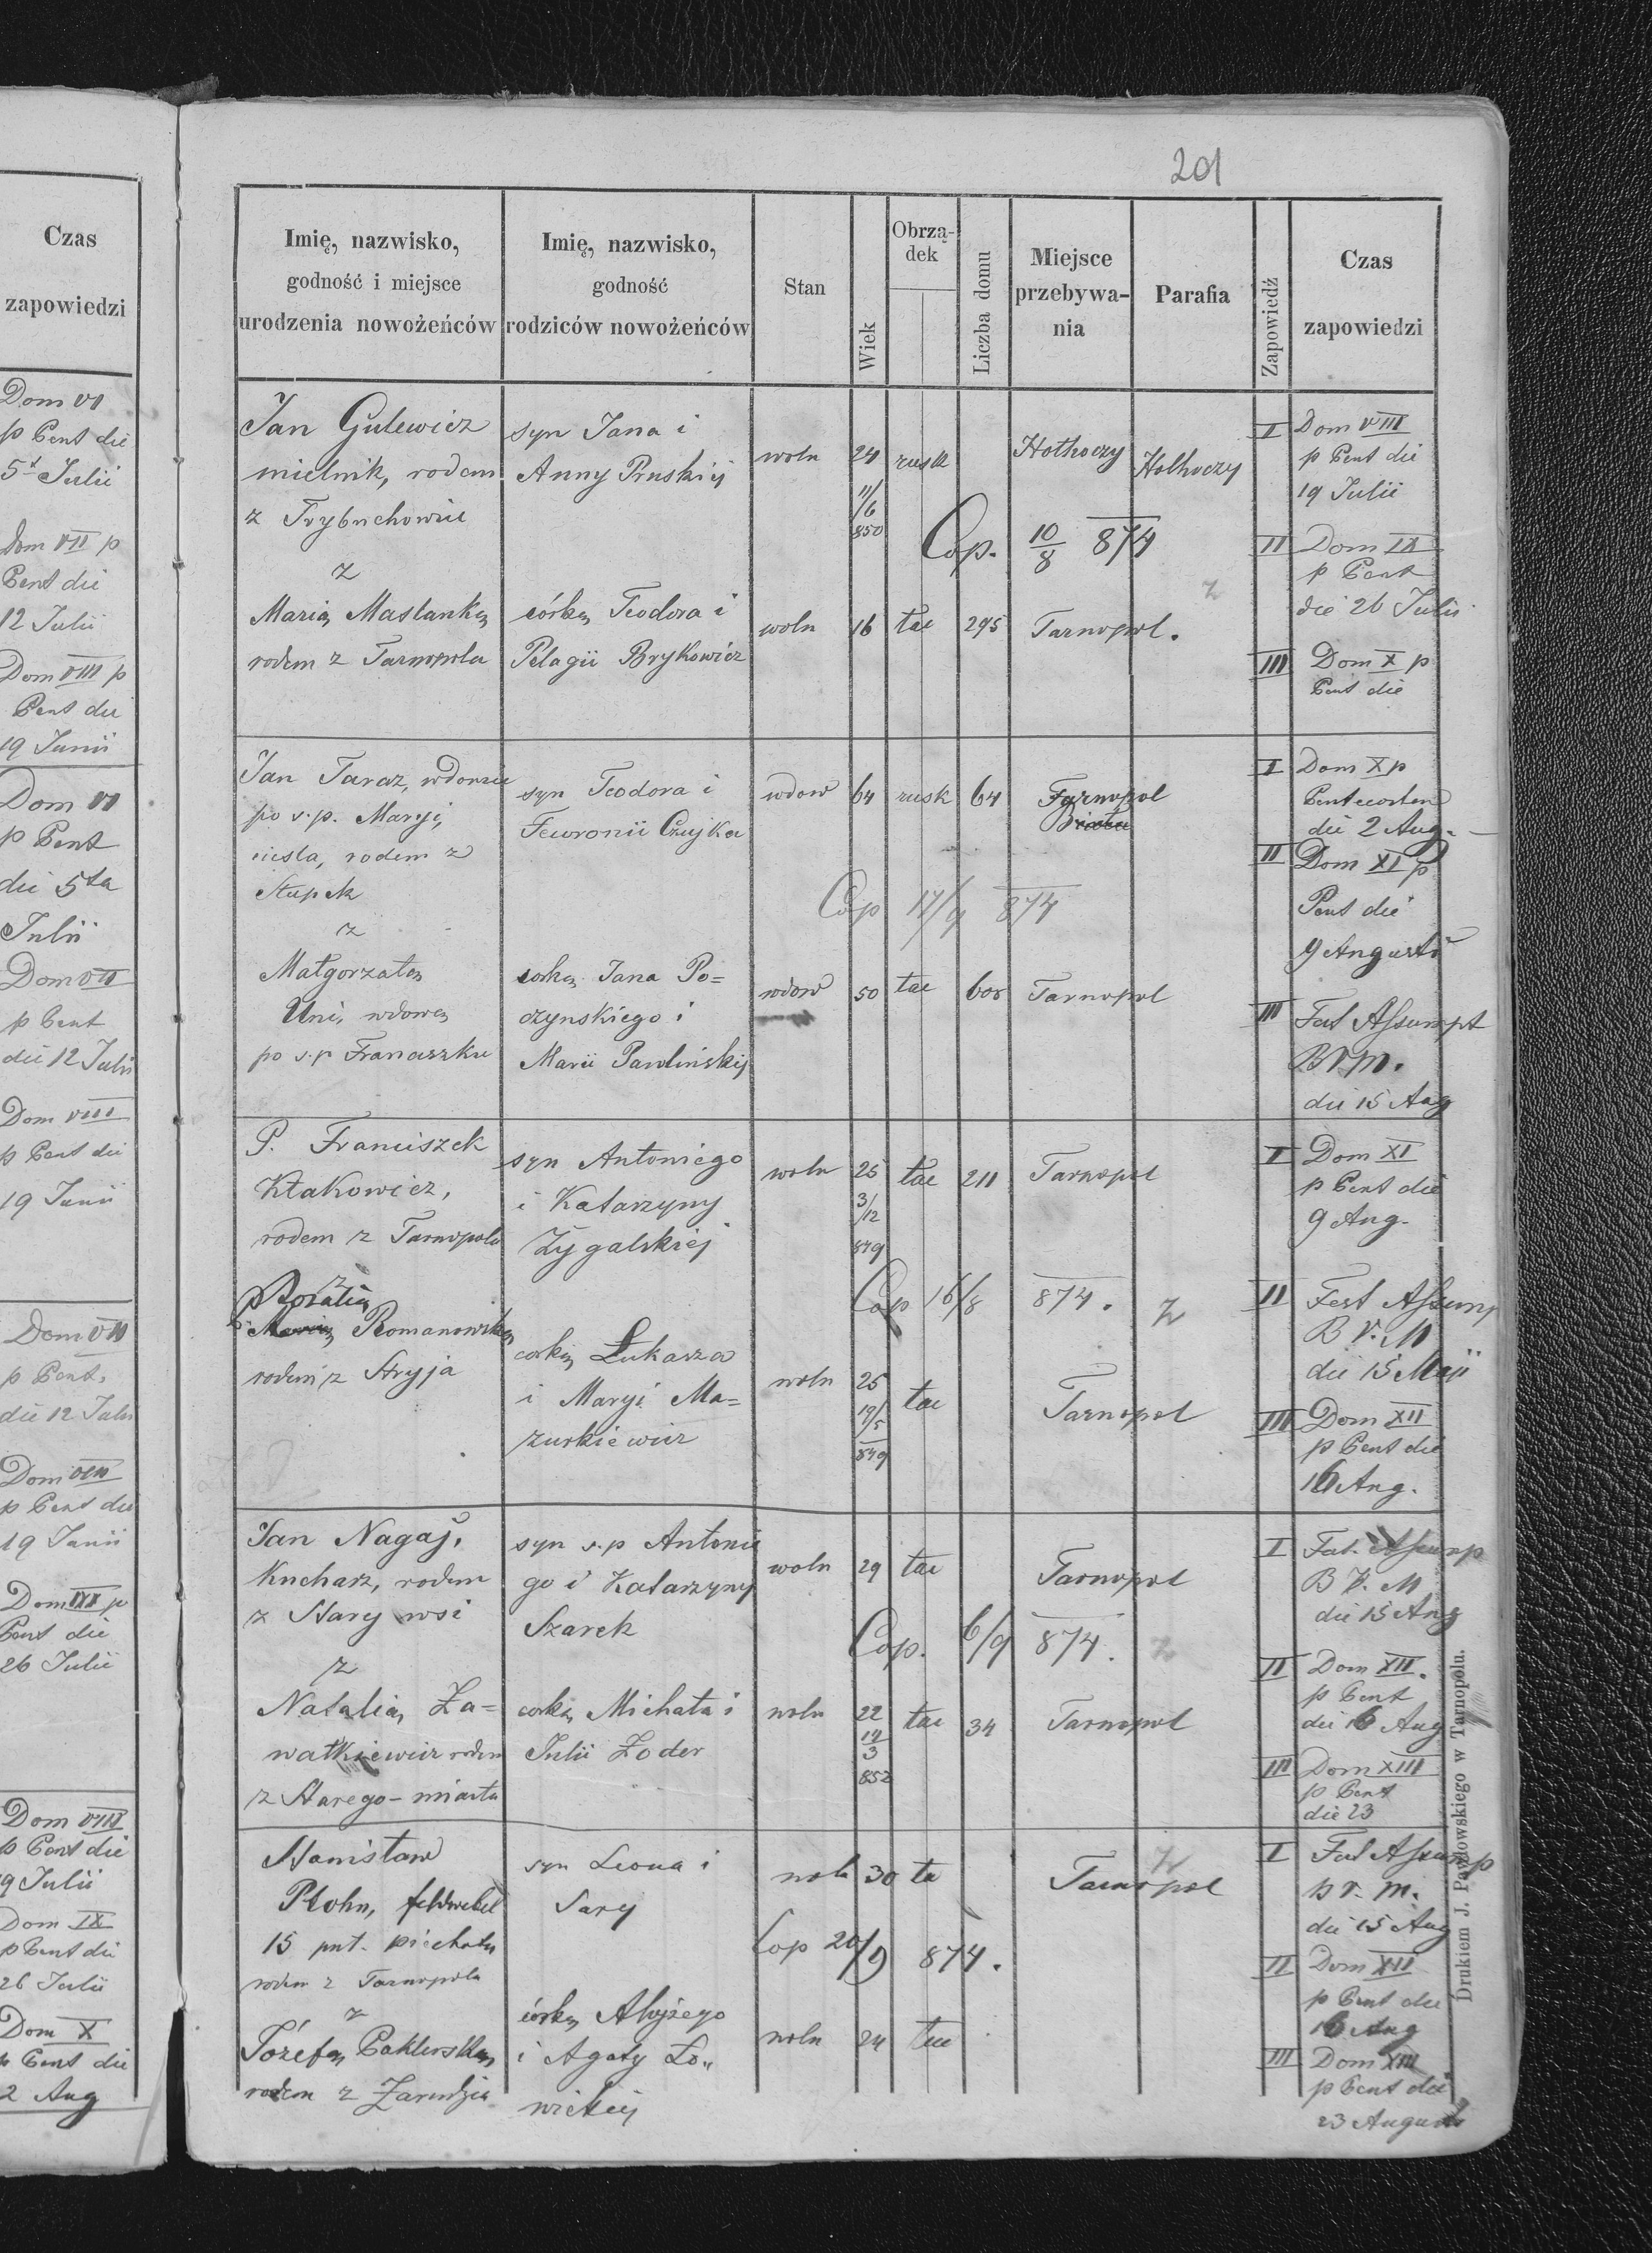 Czas
zapowiedzi
Dom VI
p Pent die
5t Julii
Dom VII p
Pent die
12 Julii
Dom VIII p
Pent die
19 Junii
Dom VI
p Pent
die 5ta
Julii
Dom VII
p Pent
die 12 Julii
Dom VIII
p Pent die
19 Junii
Dom VII
p Pent.
die 12 Julii
Dom VIII
p Pent die
19 Junii
Dom IX p
Pent die
26 Julii
Dom VIII
p Pent die
19 Julii
Dom IX
p Pent die
26 Julii
Dom X
p Pent die
2 Aug
201
Imię, nazwisko,
godność i miejsce
urodzenia nowożeńców
Imię, nazwisko,
godność
rodziców nowożeńców
Stan
Wiek
Obrzą-
dek
Liczba domu
Miejsce
przebywa-
nia
Parafia
Zapowiedź
Czas
zapowiedzi
Jan Gulewicz
mielnik, rodem
z Trybuchowiec
z
Marią Maslanką
rodem z Tarnopola
syn Jana i
Anny Pruskiej
córką Teodora i
Pelagii Brykowicz
woln 24 rusk Hołhoczy Hołhoczy
11/6
850
Cop. 10/8 874
z
woln 16 łac 295 Tarnopol.
I Dom VIII
p Pent die
19 Julii
II Dom IX
p Pent
die 26 Julii
III Dom X p
Pent die
Jan Taraz, wdowiec
po s.p. Maryi,
ciesla, rodem z
Stupek
z
Małgorzatą
Uni, wdową
po s.p Franciszku
syn Teodora i
Fewronii Czujka
corką Jana Po=
czynskiego i
Marii Pawlinskiej
wdow 64 rusk 64 Tarnopol
Cop 17/9 874
wdow 50 łac 605 Tarnopol
I Dom X p
Pentecosten
die 2 Aug.
II Dom XI p
Pent die
9 Augusti
III Fest Assumpt
B V M.
die 15 Aug
P. Franciszek
Kłakowicz,
rodem z Tarnopola
z
Rozalią
Romanowską
rodem z Stryja
syn Antoniego
i Katarzyny
Zygalskiej
corką Łukasza
i Maryi Ma=
zurkiewicz
woln 25 łac 211 Tarnopol
3/12
849
Cop 16/8 874. z
woln 25 łac Tarnopol
19/5
849
I Dom XI
p Pent die
9 Aug.
II Fest Assump
B V. M
die 15 Maji
III Dom XII
p Pent die
16 Aug.
Jan Nagaj,
Kucharz, rodem
z Stary wsi
z
Natalią Za=
wałkiewicz rodem
z Starego-miasta
syn s.p Antonie
go i Katarzyny
Szarek
corką Michała i
Julii Zoder
woln 29 łac Tarnopol
Cop. 6/9 874. z
woln 22 łac 34 Tarnopol
19
3
852
I Fest. Assump
B V. M
die 15 Aug
II Dom XII.
p Pent
die 16 Aug
III Dom XIII
p Pent
die 23
Stanisław
Płohn, feldwebel
15 put. piechoty
rodem z Tarnopola
z
Józefą Paklerską
rodem z Zarudzia
syn Leona i
Sary
córką Alojzego
i Agaty Ło„
wickiej
woln 30 ła Tarnopol
z
Cop 20/9 874.
woln 24 łac
I Fest Assump
B V. M.
die 15 Aug
II Dom XII
p Pent die
16 Aug
III Dom XIII
p Pent die
23 Augusti
Drukiem J. Pawłowskiego w Tarnopolu.